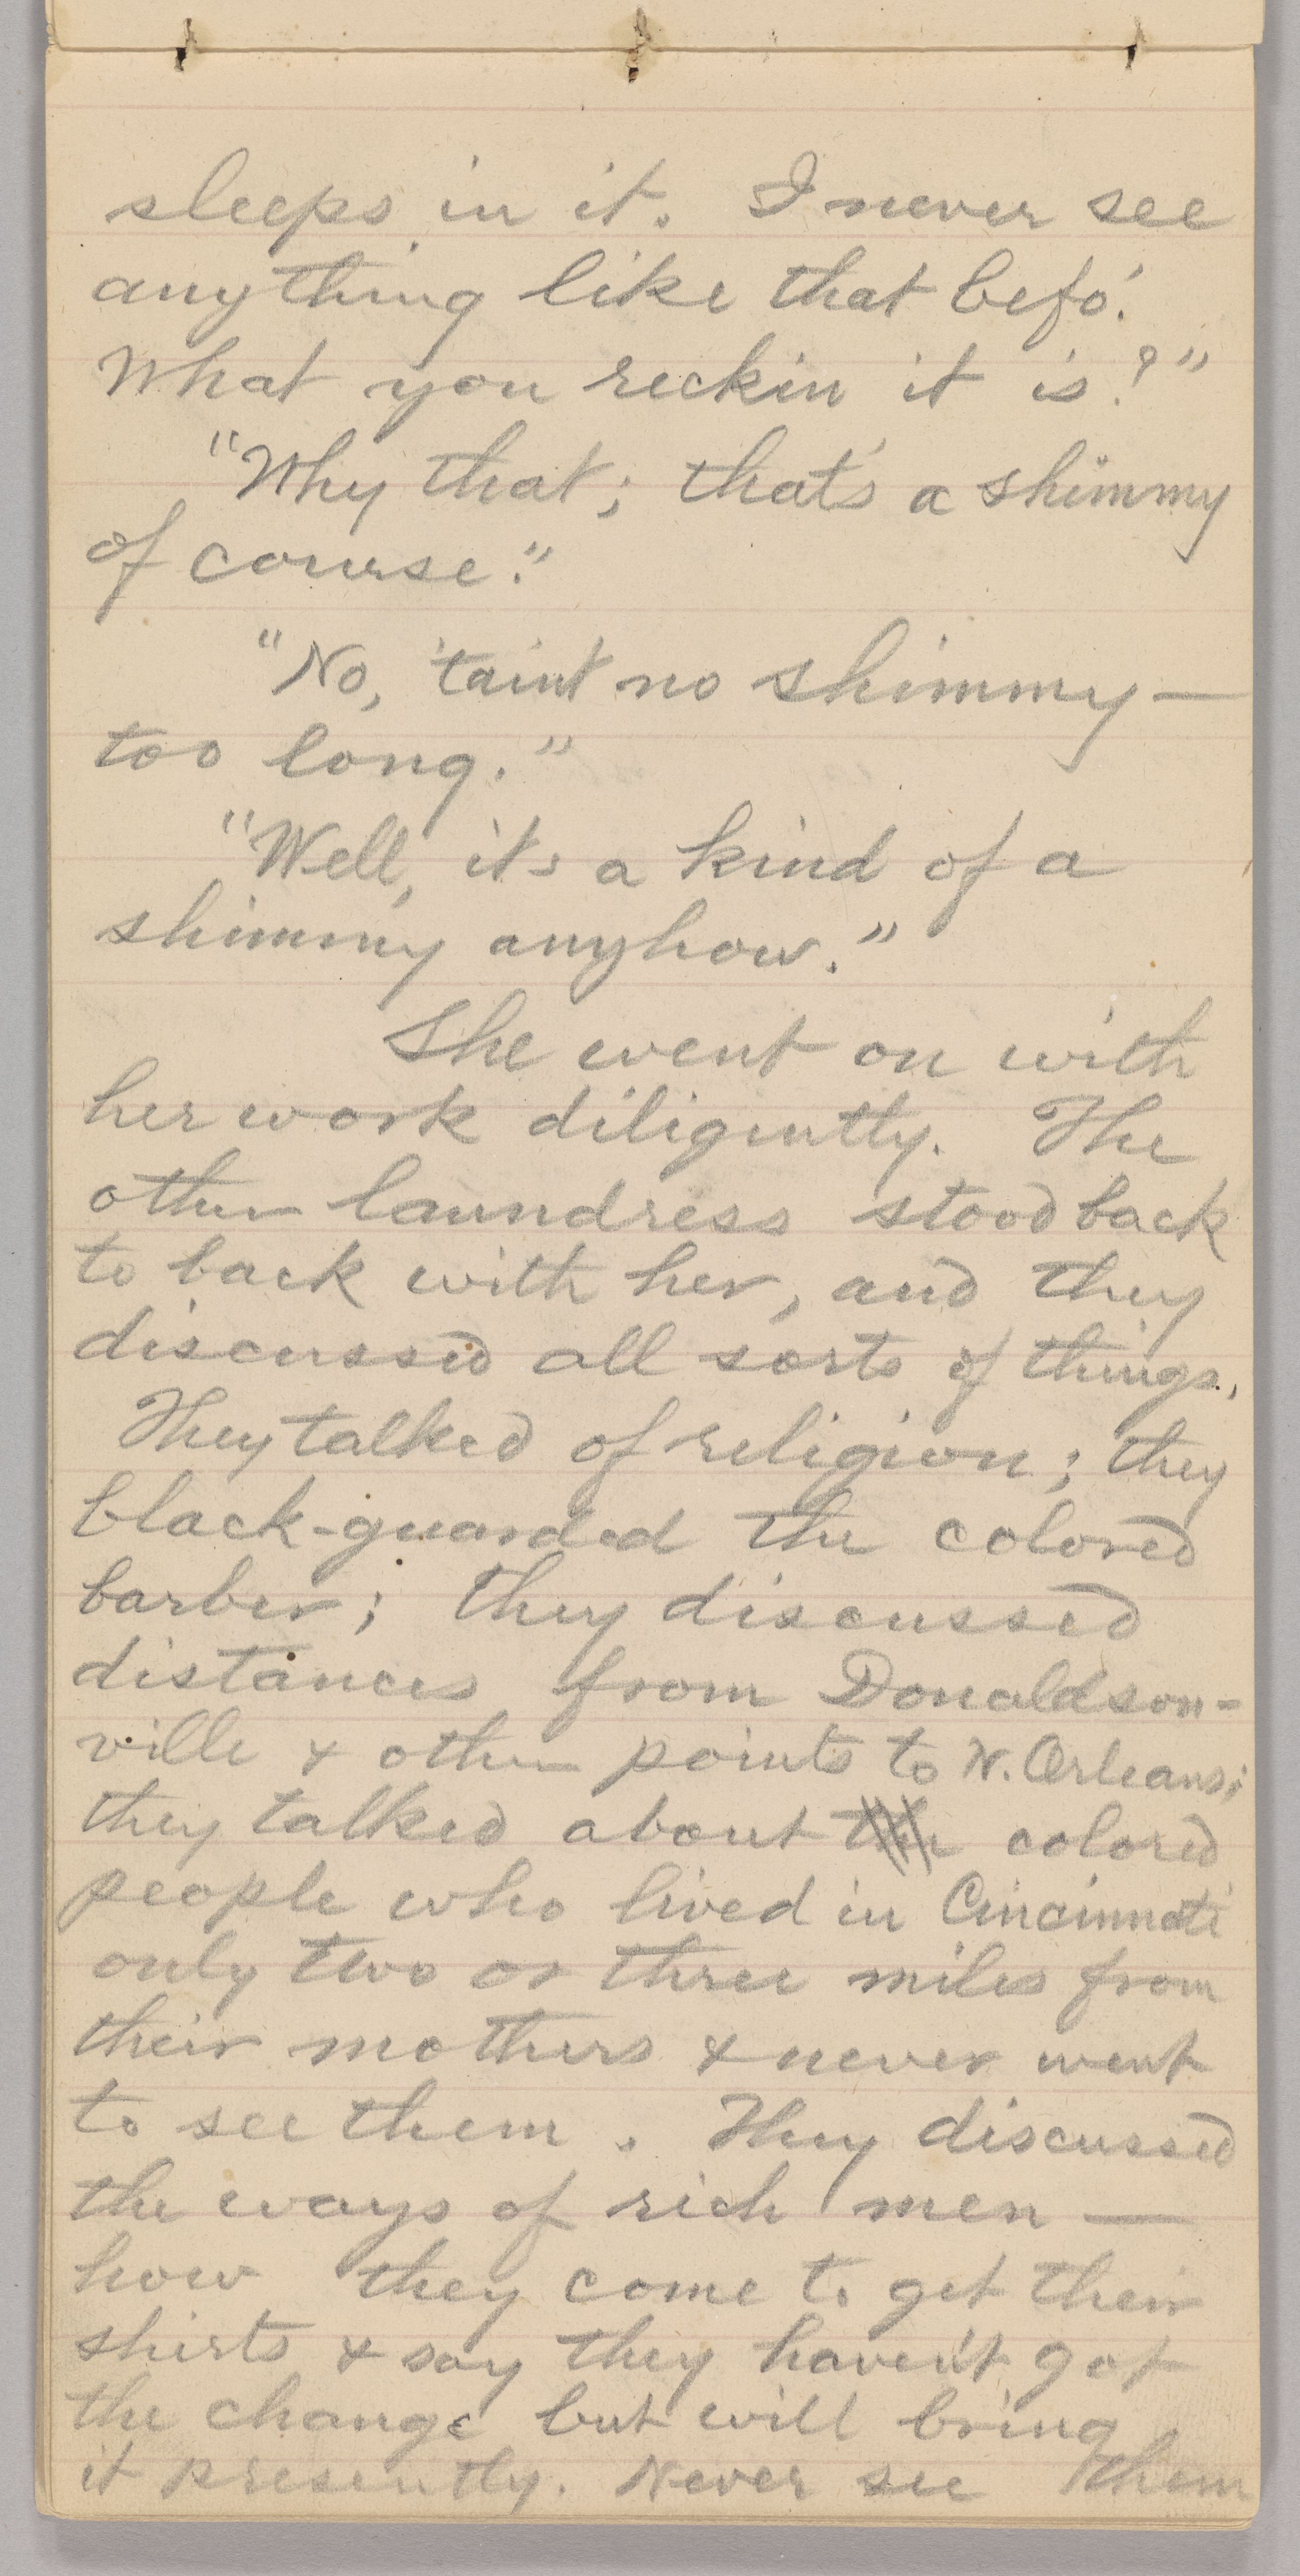 sleeps in it. I never see
anything like that befo'.
What you reckin it is?"
"Why that; that's a shimmy
of course."
"No, 'taint no shimmy —
too long."
"Well, it's a kind of a
shimmy anyhow."
She went on with
her work diligently. The
other laundress stood back
to back with her, and they
discussed all sorts of things.
They talked of religion; they
black-guarded the colored
barber; they discussed
distances from Donaldson-
ville & other points to N. Orleans;
they talked about the colored
people who lived in Cincinnati
only two or three miles from
their mothers & never went
to see them. They discussed
the ways of rich men —
how they come to get their
shirts & say they haven't got
the change but will bring
it presently. Never see them